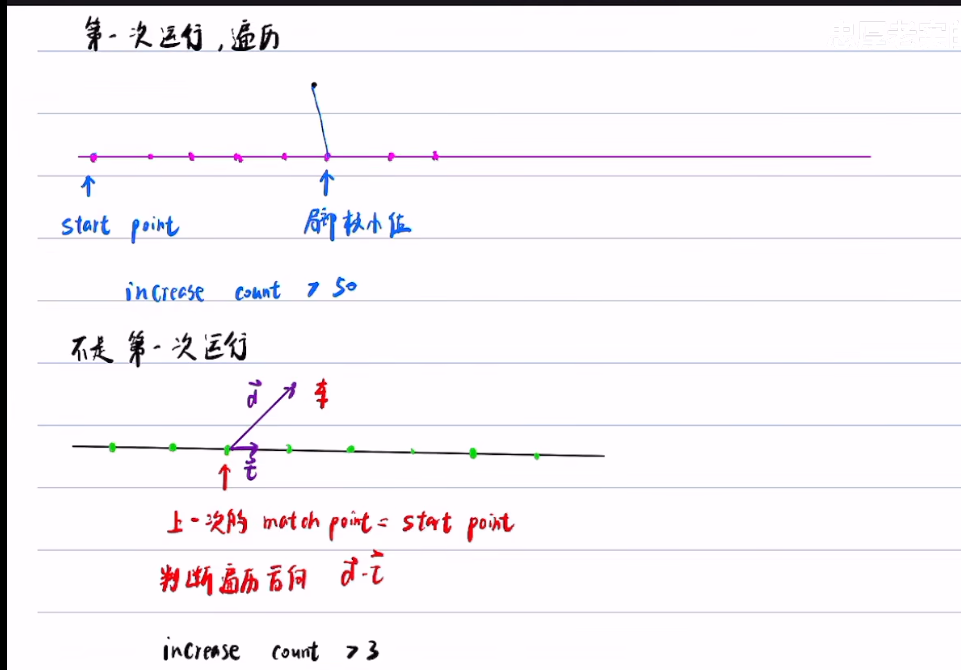 第一次运行，遍历
start point
局部极小值
increase count > 50
不是第一次运行
d 车
t
上一次的 match point = start point
判断遍历方向 d·t
increase count > 3